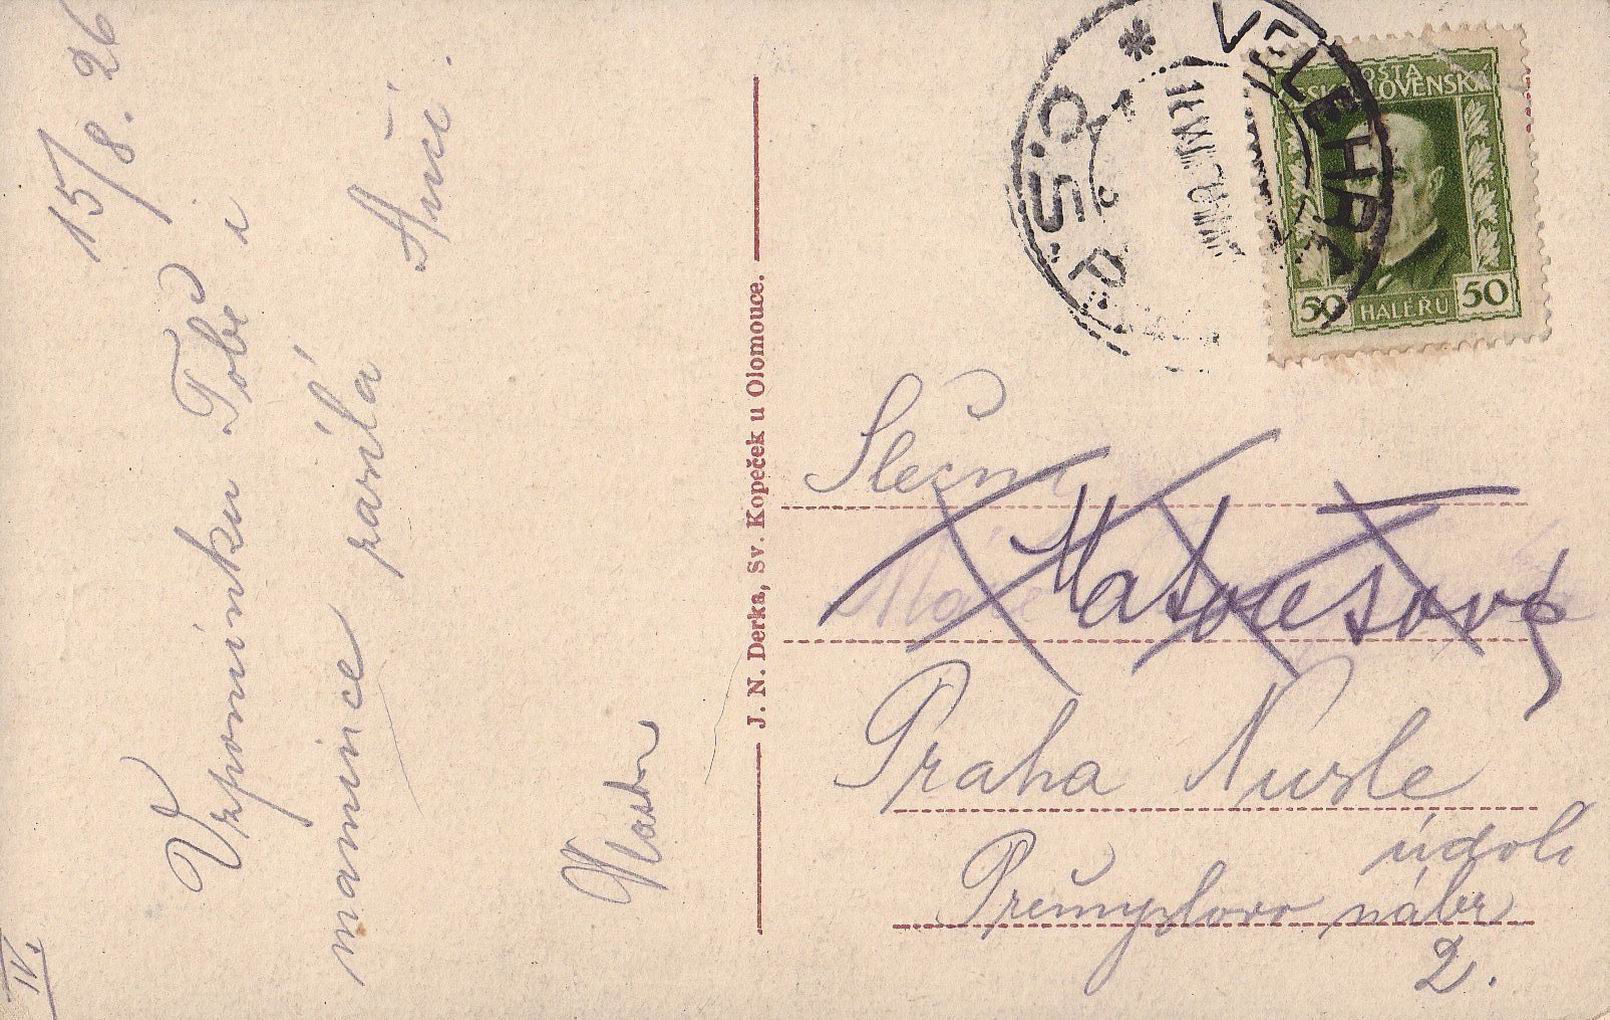 15/8. 26
Vzpomínku Tobě i
mamince posílá
Anči.
Vlasta
IV.
J. N. Derka, Sv. Kopeček u Olomouce.
VELEHRA
Č.S.P.
POŠTA
ČESKOSLOVENSKÁ
50 HALÉŘŮ 50
Slečna
Matoušová
Praha Nusle
údolí
Přemyslovo nábř
2.